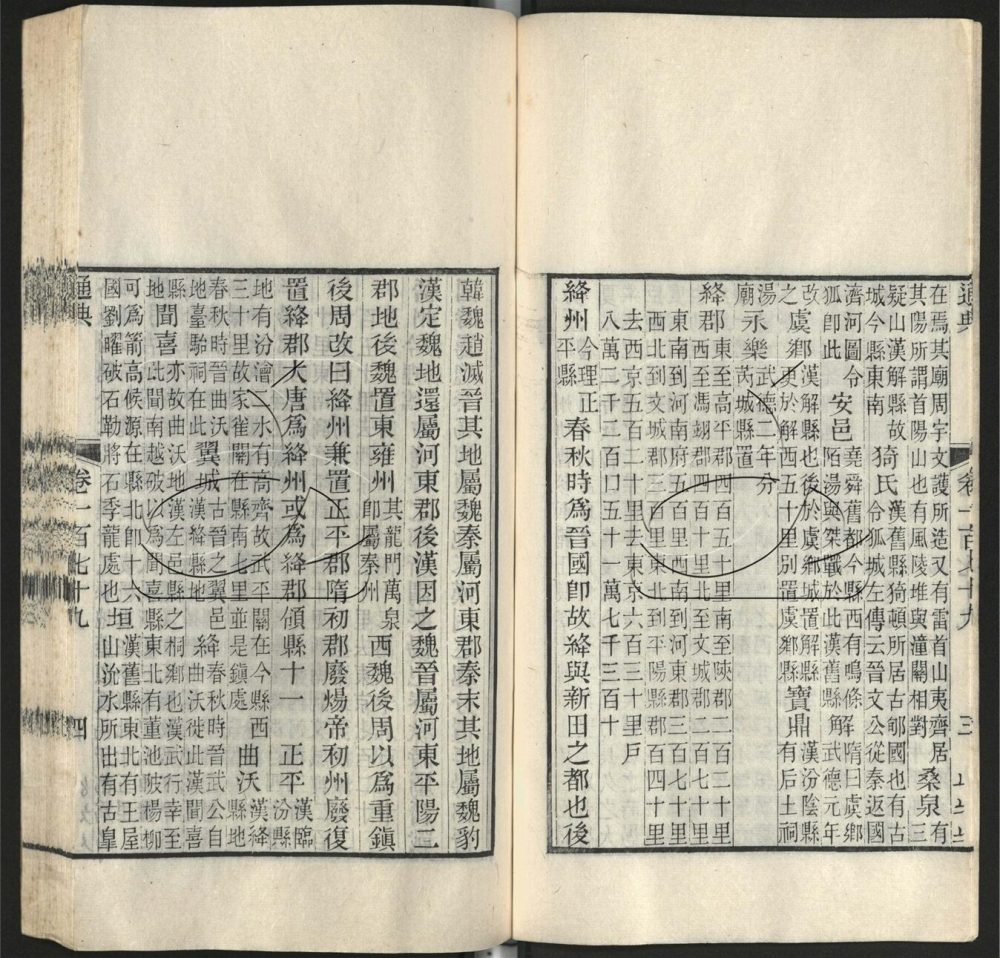 在焉其廟周宇文護所造又有雷首山夷齊居
其陽所謂首陽山也有風陵堆與潼關相對
桑泉有三
疑山漢解縣故
城今縣東南
猗氏漢舊縣猗頓所居古郇國也有古
令狐城左傳云晉文公從秦返國
濟河圖令
狐即此
安邑堯舜舊都今縣西有鳴條
陌湯與桀戰於此漢舊縣
解隋曰虞鄉
武德元年
改
虞鄉漢解縣也後於虞鄉城置解縣
更於解西五十里別置虞鄉縣
之
寶鼎漢汾陰縣
有后土祠
湯
廟
永樂武德二年分
芮城縣置
絳郡東至高平郡四百五十里南至陝郡二百二十里
西至馮翊郡四百十里北至文城郡二百七十里
東南到河南府五百里西南到河東郡三百七十里
西北到文城郡三百里東北到平陽縣郡百四十里
去西京五百二十里去東京六百三十里戶
八萬二千三百口五十一萬七千三百十
絳州今理正
平縣
春秋時為晉國卽故絳與新田之都也後
韓魏趙滅晉其地屬魏秦屬河東郡秦末其地屬魏豹
漢定魏地還屬河東郡後漢因之魏晉屬河東平陽二
郡地後魏置東雍州其龍門萬泉
卽屬秦州
西魏後周以為重鎮
後周改曰絳州兼置正平郡隋初郡廢煬帝初州廢復
置絳郡大唐為絳州或為絳郡領縣十一
正平漢臨
汾縣
地有汾澮二水有高齊故武平關在今縣西
三十里故家雀關在縣南七里並是鎮處
曲沃漢絳
縣地
春秋時晉曲沃
地臺駘祠在此
翼城古晉之翼邑
漢絳縣地
絳春秋時晉武公自
曲沃徙此漢聞喜
縣
地
聞喜亦故曲沃地漢左邑縣之桐鄉也漢武行幸至
此聞南越破以為聞喜縣東北有董池陂楊柳
可為箭高候源在縣北卽十六
國劉曜破石勒將石季龍處也
垣漢舊縣東北有王屋
山沇水所出有古皇
通典
卷一百七十九
三
通典
卷一百七十九
四